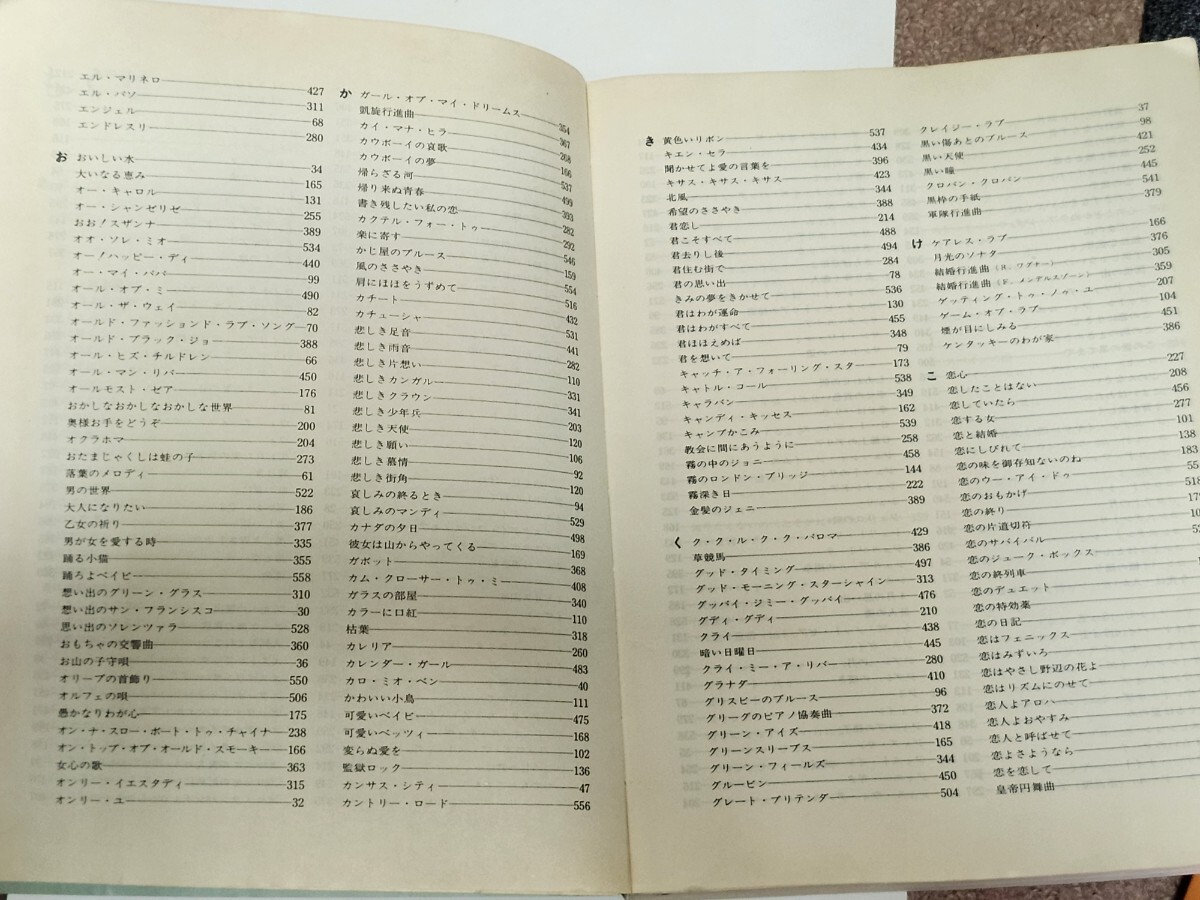 エル・マリネロ 427
エル・パソ 311
エンジェル 68
エンドレスリ 280
お おいしい水 34
大いなる恵み 165
オー・キャロル 131
オー・シャンゼリゼ 255
おお！スザンナ 389
オオ・ソレ・ミオ 534
オー！ハッピー・ディ 440
オー・マイ・パパ 99
オール・オブ・ミー 490
オール・ザ・ウェイ 82
オールド・ファッションド・ラブ・ソング 70
オールド・ブラック・ジョー 388
オール・ヒズ・チルドレン 66
オール・マン・リバー 450
オールモスト・ゼア 176
おかしなおかしなおかしな世界 81
奥様お手をどうぞ 200
オクラホマ 204
おたまじゃくしは蛙の子 273
落葉のメロディ 61
男の世界 522
大人になりたい 186
乙女の祈り 377
男が女を愛する時 335
踊る小猫 355
踊ろよベイビー 558
想い出のグリーン・グラス 310
想い出のサン・フランシスコ 30
思い出のソレンツァラ 528
おもちゃの交響曲 360
お山の子守唄 36
オリーブの首飾り 550
オルフェの唄 506
愚かなりわが心 175
オン・ナ・スロー・ボート・トゥ・チャイナ 238
オン・トップ・オブ・オールド・スモーキー 166
女心の歌 363
オンリー・イエスタディ 315
オンリー・ユー 32
か ガール・オブ・マイ・ドリームス 354
凱旋行進曲 367
カイ・マナ・ヒラ 268
カウボーイの哀歌 166
カウボーイの夢 537
帰らざる河 499
帰り来ぬ青春 393
書き残したい私の恋 282
カクテル・フォー・トゥー 292
楽に寄す 546
かじ屋のブルース 159
風のささやき 554
肩にほほをうずめて 516
カチート 432
カチューシャ 531
悲しき足音 441
悲しき雨音 282
悲しき片想い 110
悲しきカンガルー 331
悲しきクラウン 341
悲しき少年兵 203
悲しき天使 120
悲しき願い 106
悲しき慕情 92
悲しき街角 120
哀しみの終るとき 94
哀しみのマンディ 529
カナダの夕日 498
彼女は山からやってくる 169
ガボット 368
カム・クローサー・トゥ・ミー 408
ガラスの部屋 340
カラーに口紅 110
枯葉 318
カレリア 260
カレンダー・ガール 483
カロ・ミオ・ベン 40
かわいい小鳥 111
可愛いベイビー 475
可愛いベッツィ 168
変らぬ愛を 102
監獄ロック 136
カンサス・シティ 47
カントリー・ロード 556
き 黄色いリボン 537
キエン・セラ 434
聞かせてよ愛の言葉を 396
キサス・キサス・キサス 423
北風 344
希望のささやき 388
君恋し 214
君こそすべて 488
君去りし後 494
君住む街で 284
君の思い出 78
きみの夢をきかせて 536
君はわが運命 130
君はわがすべて 455
君ほほえめば 348
君を想いて 79
キャッチ・ア・フォーリング・スター 173
キャトル・コール 538
キャラバン 349
キャンディ・キッセス 162
キャンプかこみ 539
教会に間にあうように 258
霧の中のジョニー 458
霧のロンドン・ブリッジ 144
霧深き日 222
金髪のジェニー 389
く ク・ク・ル・ク・ク・パロマ 429
草競馬 386
グッド・タイミング 497
グッド・モーニング・スターシャイン 313
グッバイ・ジミー・グッバイ 476
グディ・グディ 210
クライ 438
暗い日曜日 445
クライ・ミー・ア・リバー 280
グラナダ 410
グリスビーのブルース 96
グリーグのピアノ協奏曲 372
グリーン・アイズ 418
グリーンスリーブス 165
グリーン・フィールズ 344
グルービン 450
グレート・プリテンダー 504
クレイジー・ラブ 37
黒い傷あとのブルース 98
黒い天使 421
黒い瞳 252
クロパン・クロパン 445
黒枠の手紙 541
軍隊行進曲 379
け ケアレス・ラブ 166
月光のソナタ 376
結婚行進曲（R．ワグナー） 305
結婚行進曲（F．メンデルスゾーン） 359
ゲッティング・トゥ・ノゥ・ユー 207
ゲーム・オブ・ラブ 104
煙が目にしみる 451
ケンタッキーのわが家 386
こ 恋心 227
恋したことはない 208
恋していたら 456
恋する女 277
恋と結婚 101
恋にしびれて 138
恋の味を御存知ないのね 183
恋のウー・アイ・ドゥ
恋のおもかげ 518
恋の終り
恋の片道切符
恋のサバイバル
恋のジューク・ボックス
恋の終列車
恋のデュエット
恋の特効薬
恋の日記
恋はフェニックス
恋はみずいろ
恋はやさし野辺の花よ
恋はリズムにのせて
恋人よアロハ
恋人よおやすみ
恋人と呼ばせて
恋よさようなら
恋を恋して
皇帝円舞曲